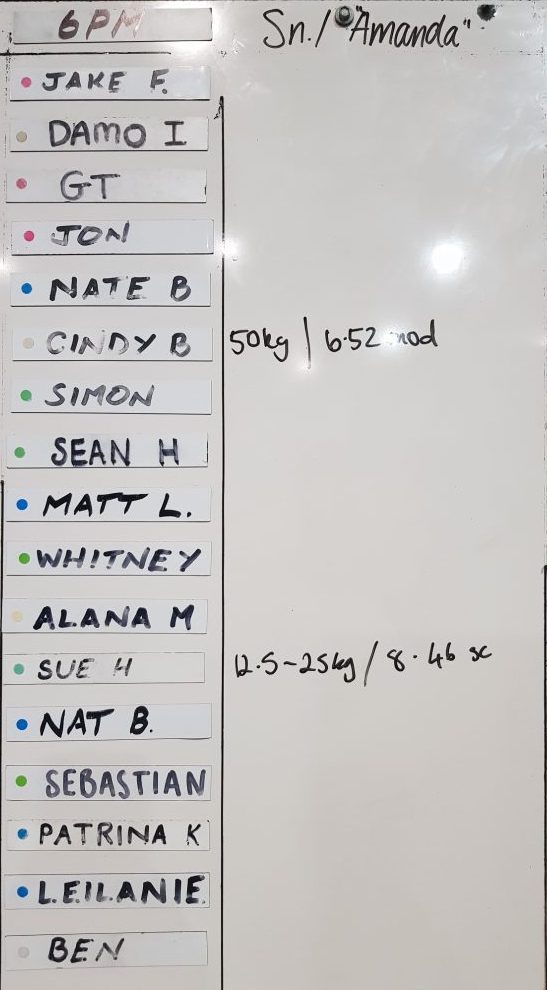 6PM Sn./ "Amanda"
JAKE F.
DAMO I
GT
JON
NATE B
CINDY B 50kg | 6.52 mod
SIMON
SEAN H
MATT L.
WHITNEY
ALANA M
SUE H 12.5-25kg / 8.46 sc
NAT B.
SEBASTIAN
PATRINA K
LEILANIE
BEN